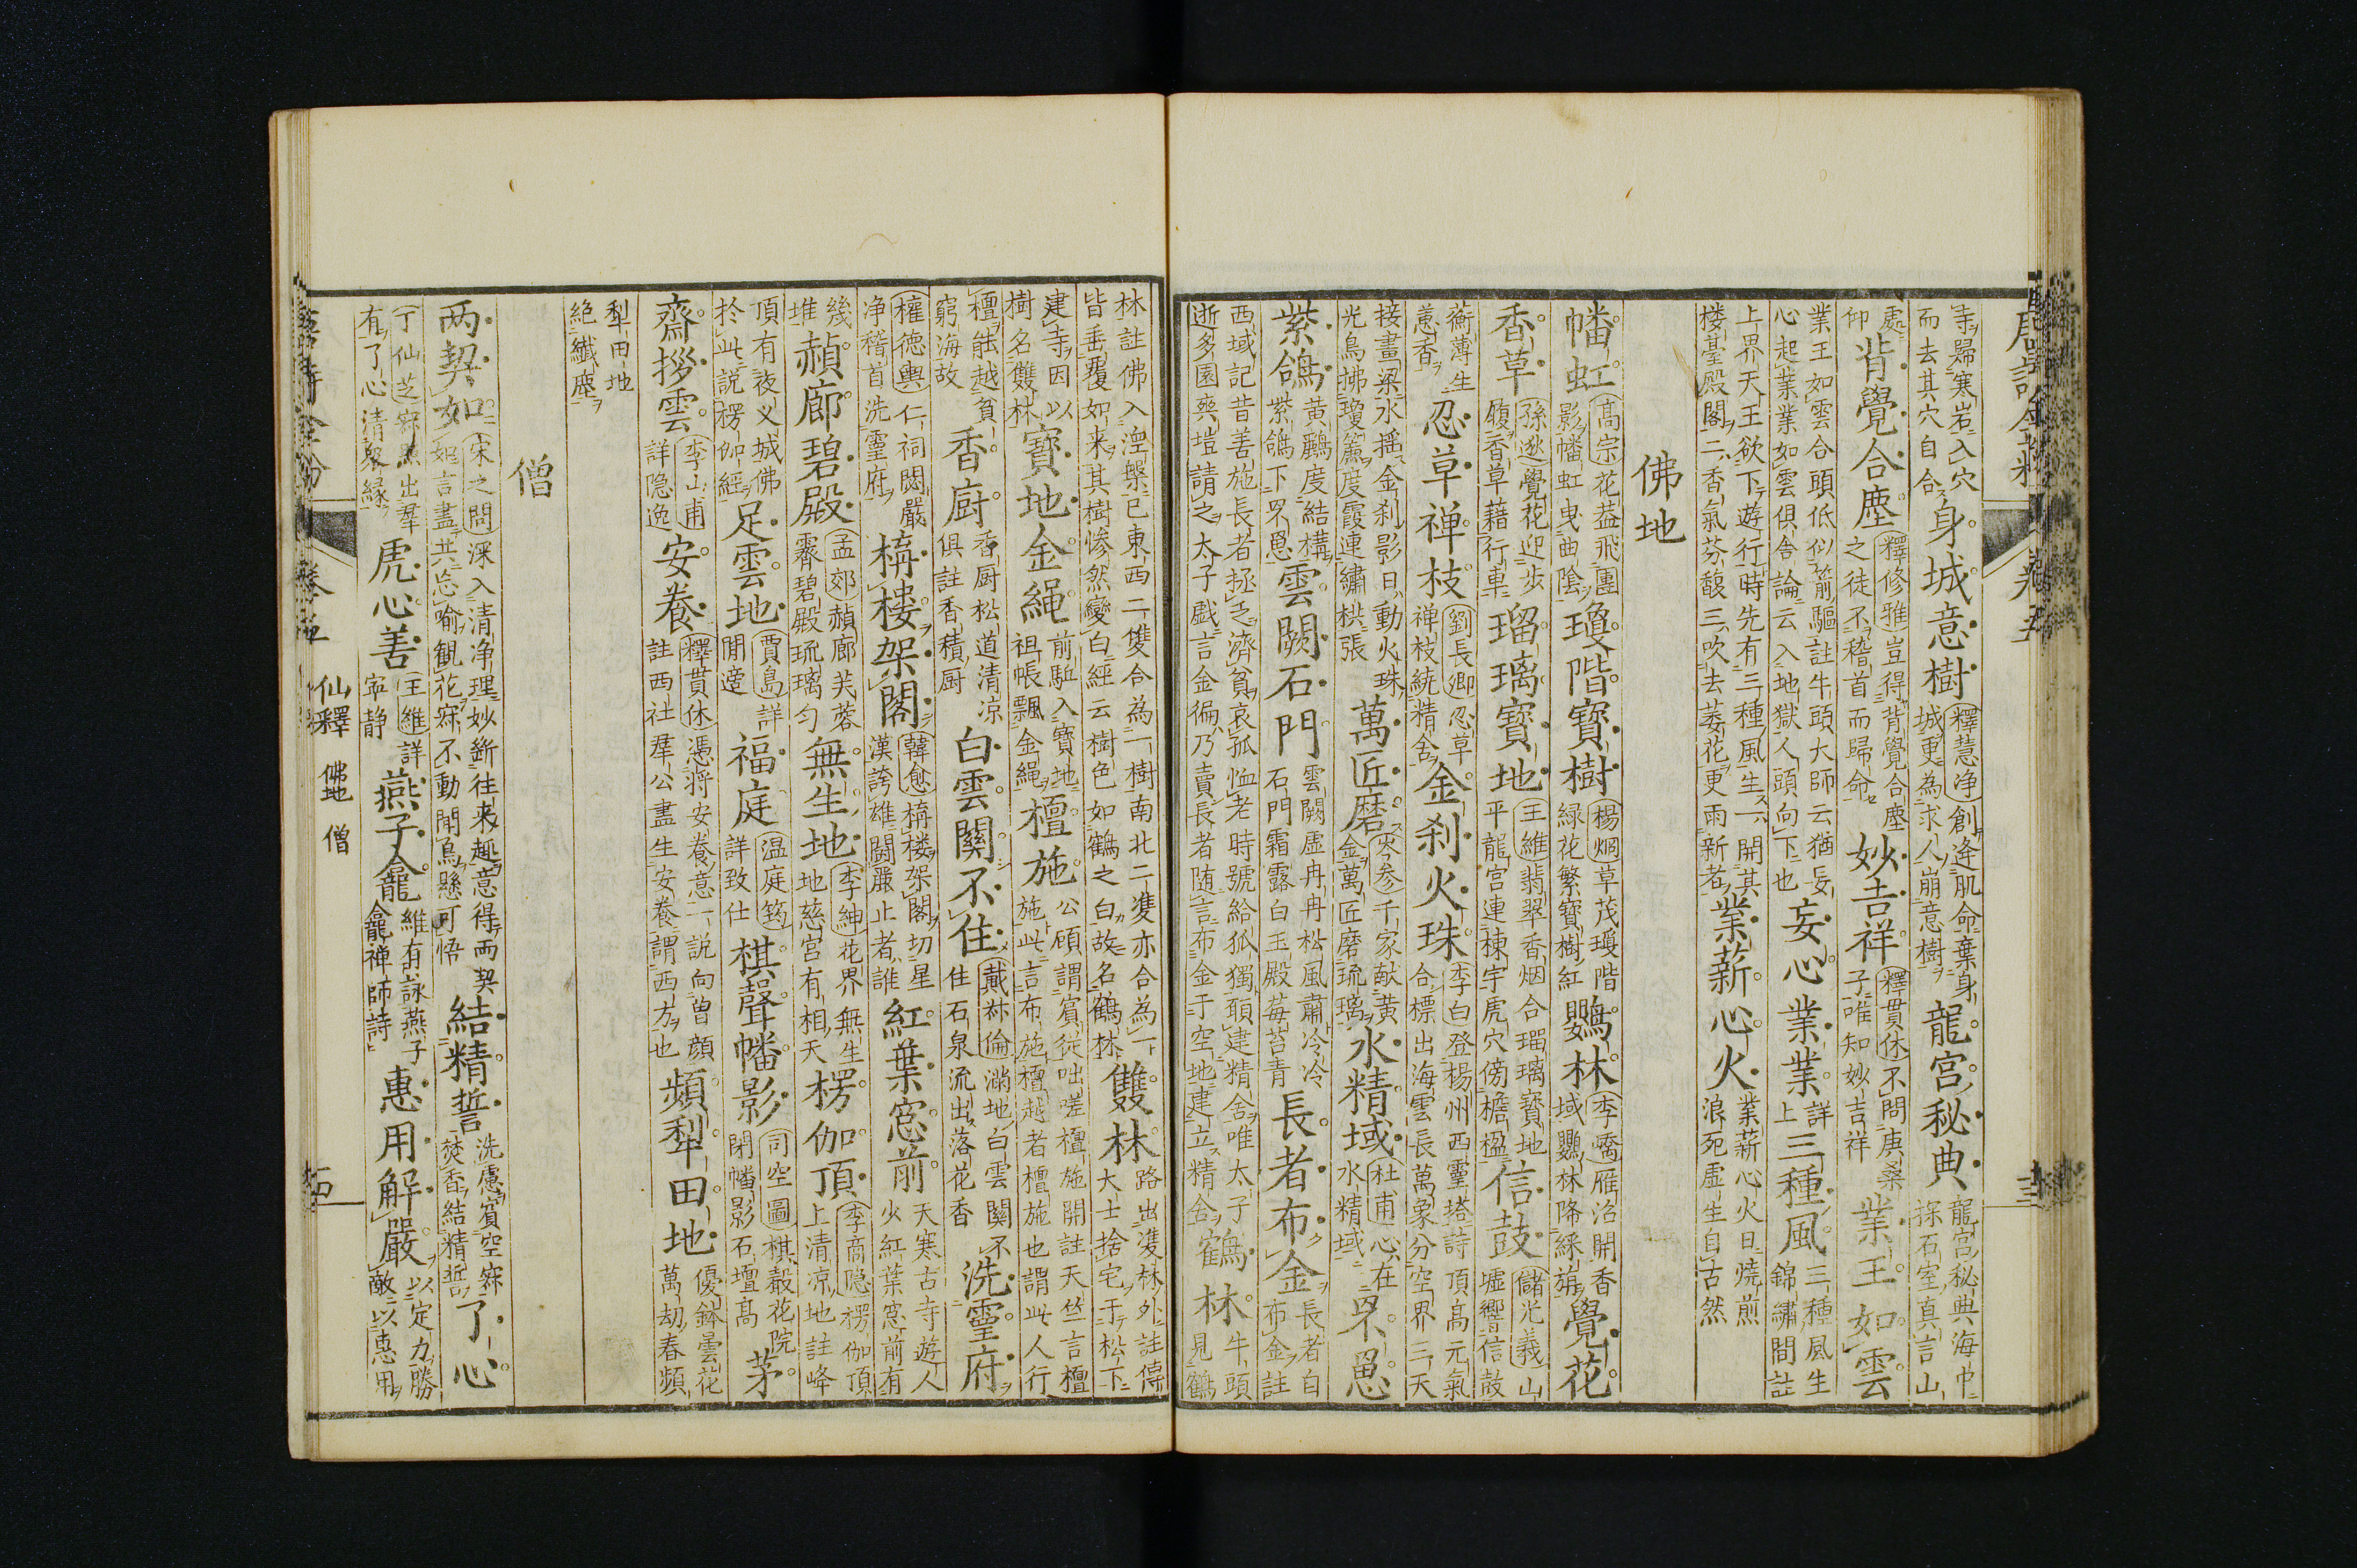 寺歸寒岩入穴
而去其穴自合
身城意樹
釋慧浄創逢肌命棄身
城更為求人崩意樹
龍宮秘典
龍宮秘典海中
探石室真言山
處
仰
背覺合塵
釋修雅豈得背覺合塵
之徒不稽首而歸命
妙吉祥
釋貫休不問庚桑
子唯知妙吉祥
業王如雲
業王如雲合頭低似箭驅註牛頭大師云猶妄
心起業業如雲俱合論云入地獄人頭向下也
妄心業業
詳
上
三種風
三種風生
錦繡間註
上界天王欲下遊行時先有三種風生一開其
楼臺殿閣二香氣芬馥三吹去萎花更雨新者
業薪心火
業薪心火日焼煎
浪死虚生自古然
佛地
幡虹
高宗花葢飛團
影幡虹曳曲陰
瓊階寳樹
楊烱草茂瓊階
緑花繁寳樹紅
鸚林
李嶠雁沼開香
域鸚林降綵旃
覺花
香草
孫逖覺花迎步
履香草藉行車
瑠璃寳地
王維翡翠香烟合瑠璃寳地
平龍宮連棟宇虎穴傍檐楹
信鼓
儲光義山
墟響信鼓
蘅薄生
蕙香
忍草禅枝
劉長卿忍草
禅枝繞精舎
金刹火珠
李白登楊州西靈塔詩頂髙元氣
合標出海雲長萬象分空界三天
接畫梁水揺金刹影日動火珠
光鳥拂瓊簾度霞連繡栱張
萬匠磨
岑参千家献黄
金萬匠磨琉璃
水精域
杜甫心在
水精域
罘罳
紫鴿
黄鸝度結構
紫鴿下罘罳
雲闕石門
雲闕虚冉冉松風肅冷冷
石門霜露白玉殿莓苔青
長者布金
長者白
布金註
西域記昔善施長者拯乏濟貧哀孤恤老時號給孤獨願建精舎唯太子
逝多園爽塏請之太子戯言金徧乃賣長者随言布金于空地建立精舎
鶴林
牛頭
見鶴
林註佛入涅槃已東西二雙合為一樹南北二雙亦合為一
皆垂覆如来其樹惨然變白經云樹色如鶴之白故名鶴林
雙林
路出雙林外註傅
大士捨宅于松下
建寺因以
樹名雙林
寳地金縄
前駈入寳地
祖帳飄金縄
檀施
公頋謂賓従咄嗟檀施開註天竺言檀
施此言布施檀越者檀施也謂此人行
檀能越貧
窮海故
香厨
香厨松道清凉
俱註香積厨
白雲關不住
戴叔倫滿地白雲關不
住石泉流出落花香
洗靈府
權德輿仁祠閟嚴
浄稽首洗靈府
構楼架閣
韓愈構楼架閣切星
漢誇雄鬪麗止者誰
紅葉窓前
天寒古寺遊人
火紅葉窓前有
幾
堆
頳廊碧殿
孟郊頳廊芙蓉
霽碧殿琉璃匀
無生地
李紳花界無生
地慈宮有相天
楞伽頂
李商隠楞伽頂
上清凉地註峰
頂有夜义城佛
扵此説楞伽經
足雲地
賈島詳
聞遶
福庭
温庭筠
詳致仕
棋聲幡影
司空圖棋聲花院
閉幡影石壇髙
茅
齋撥雲
李山甫
詳隠逸
安養
釋貫休憑将安養意一説向曽顔
註西社羣公盡生安養謂西方也
頻犁田地
優鉢曇花
萬劫春頻
犁田地
絶纎塵
僧
两契如
宋之問深入清净理妙断往来趣意得两契
如言盡共忘喩観花寂不動聞鳥懸可悟
結精誓
洗慮賓空寂
焚香結精誓
了心
丁仙芝寂黙出羣
有了心清衆縁
虎心善
王維詳
寧静
燕子龕
維有詠燕子
龕禅師詩
惠用解嚴
以定力勝
敵以惠用
仙釋 佛地 僧